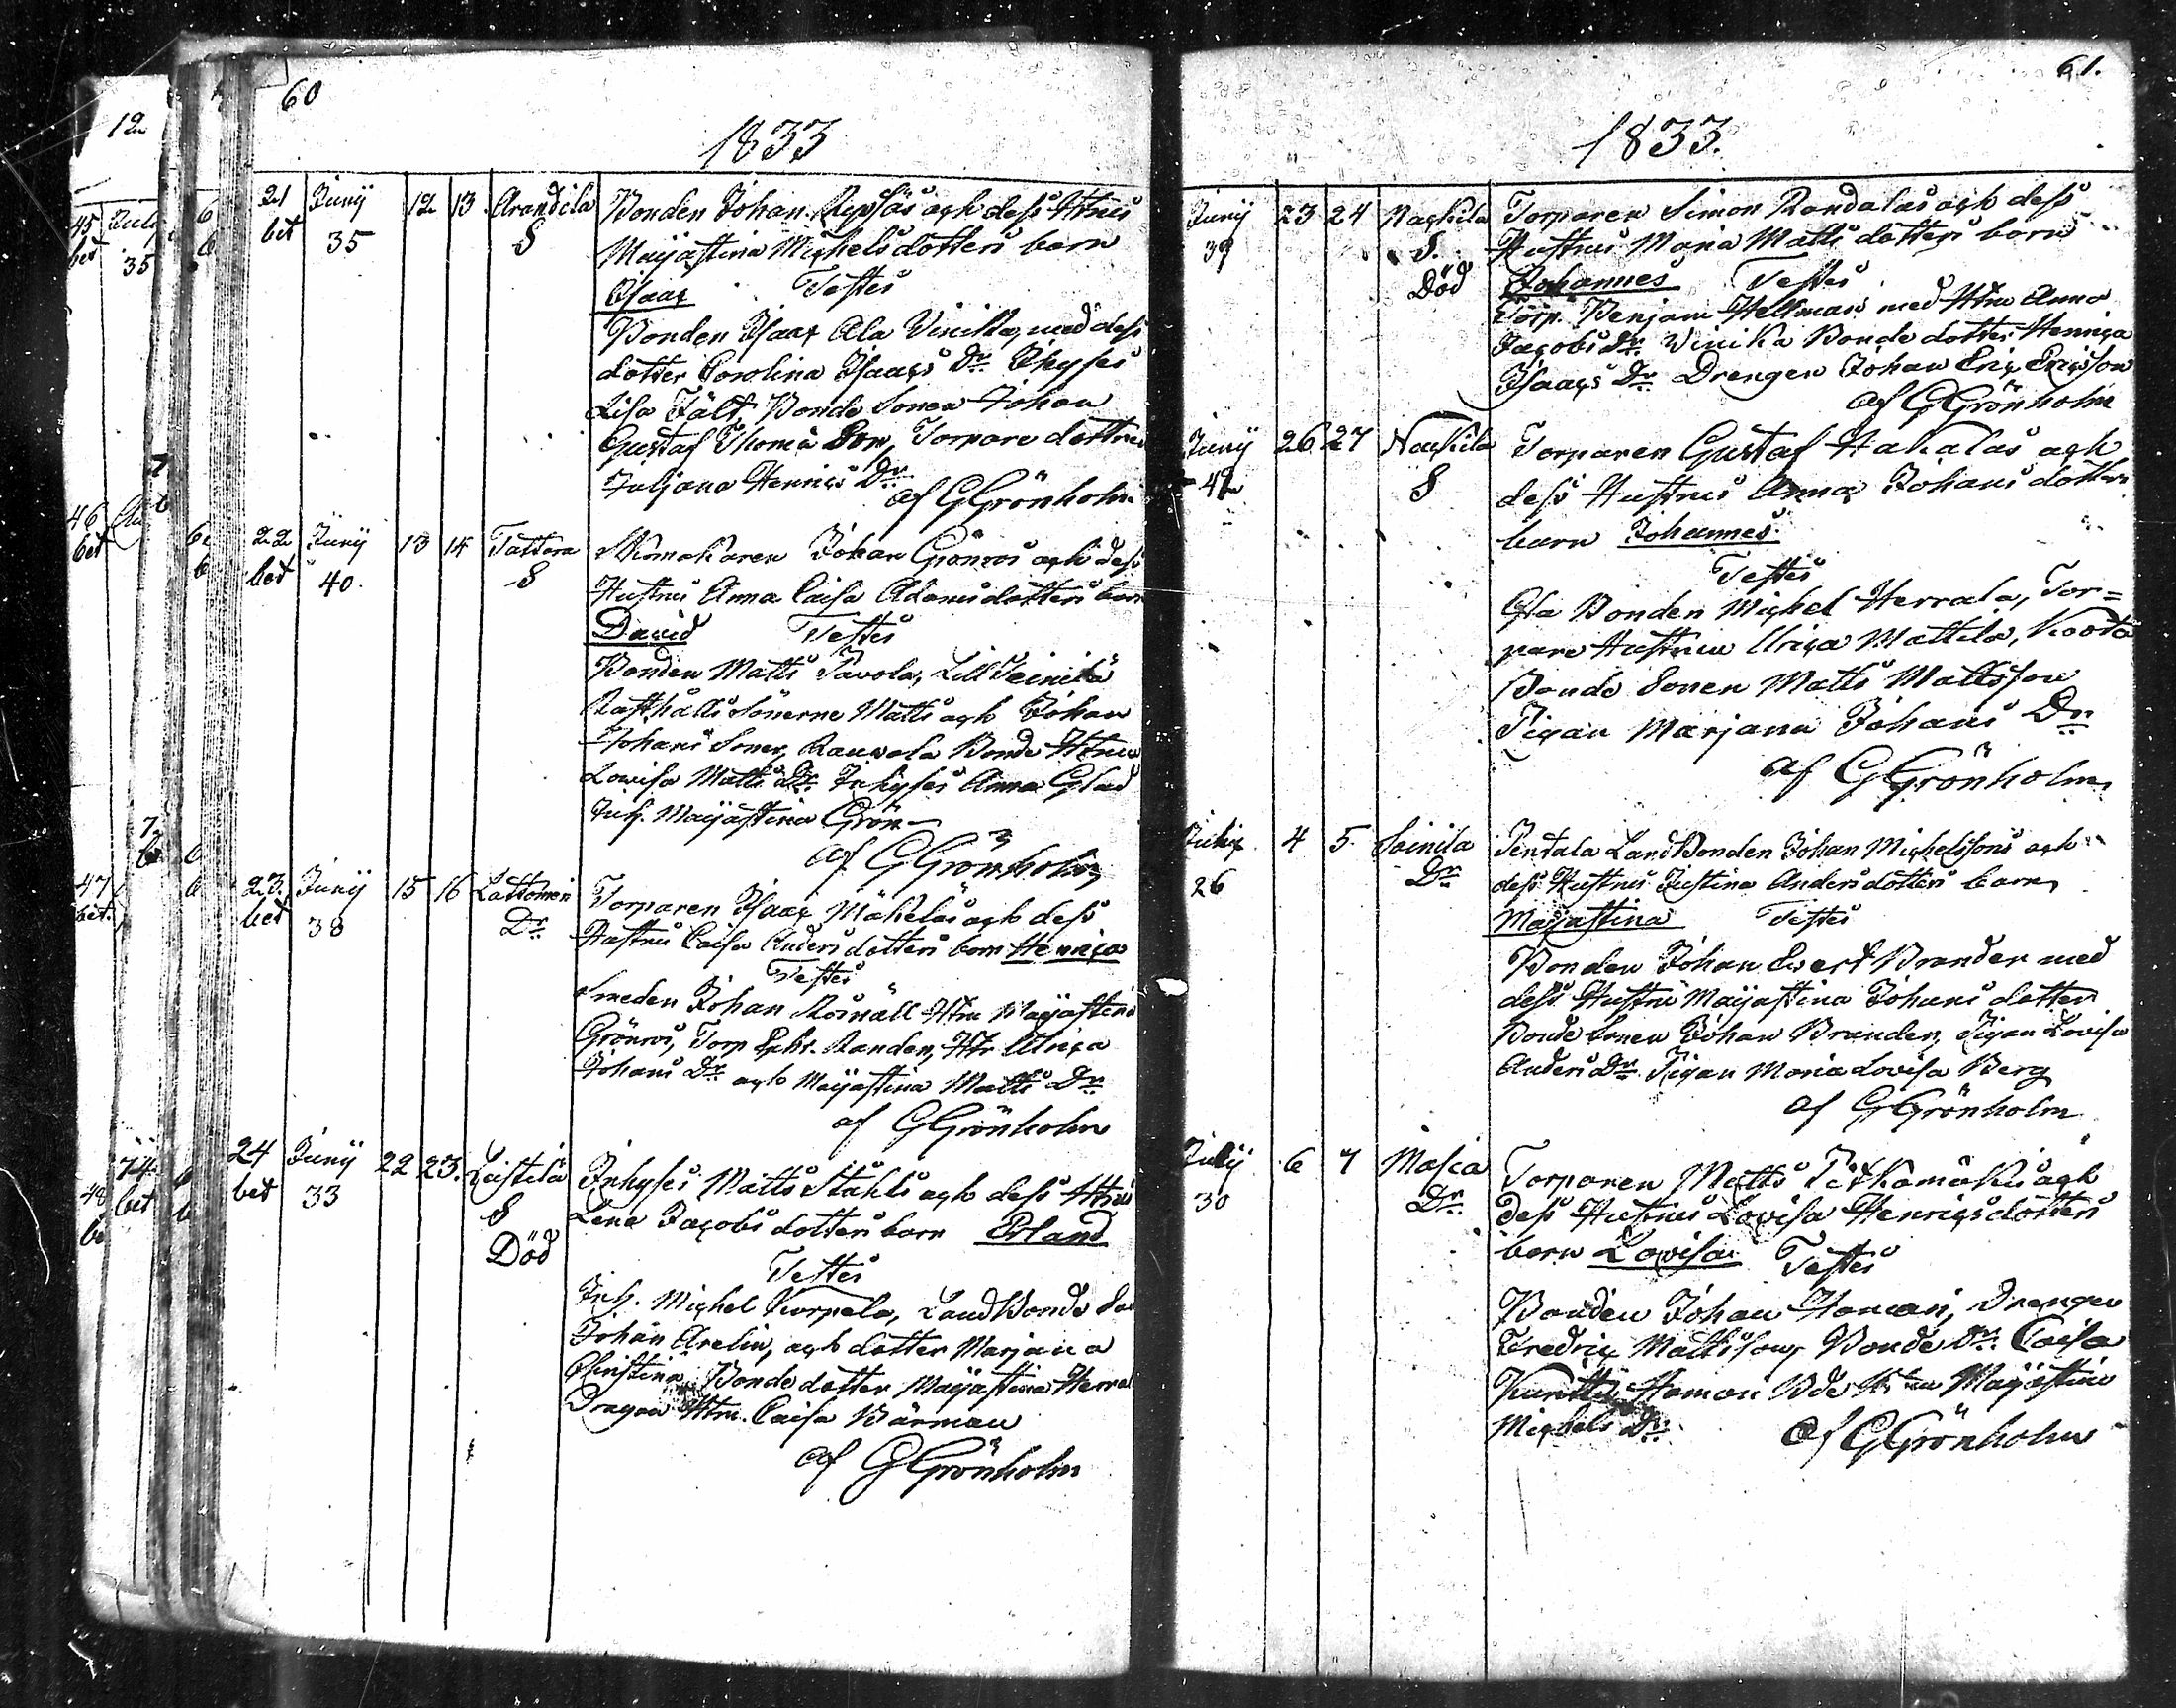 60
1833
21 Junij 12 13 Arandila Bonden Johan Ryssäs och dess Hustrus
bet 35 S Maijastina Michelsdotters barn
Isaac Testes
Bonden Isaac Ala Vinikka, med dess
dotter Carolina Isaacs Dr. Inhyses
Lisa Fält, Bonde Sonen Johan
Gustaf Thomæ Son, Torpare dottren
Juljana Henrics Dr.
af G Grönholm
22 Junij 13 14 Tattera Johan Grönros och dess
bet 40. S Hustrus Anna Caisa Adamsdotters barn
David Testes
Bonden Matts Pavola, Lill Seinilä
Rusthålls Sönerne Matts och Johan
Johans Söner, Rauvola Bonde Hustru
Lovisa Matts Dr. Inhyses Anna Glad
Inh. Maijastina Grön
af G Grönholm
23. Junij 15 16 Lattomeri Torparen Isaac Mäkeläs och dess
bet 38 Dr. Hustrus Caisa Anders dotters barn Henrica
Testes
Smeden Johan Rosnäll Htru Maijastina
Grönros, Torp. Randen, Ulrica
Johans Dr. och Maijastina Matts Dr.
af G Grönholm
24 Junij 22 23. Leistilä Inhyses Matts Ståhls och dess Htrus
bet 33 S Lena Jacobs dotters barn Erland
Död
Testes
Inh. Michel Korpela, Land Bonde
Johan Arelin, och dotter Marjana
Christina, Bonde dotter Maijastina
Dragon Htru. Caisa Bärman
af G Grönholm
61.
1833.
Junij 23 24 Nackila Torparen Simon Randalas och dess
39 S. Hustrus Maria Matts dotters barn
Död Johannes Testes
Torp. Benjam Hellman med Htru Anna
Jacobs Dr. Vinika Bonde dotter Henrica
Isaacs Dr. Drengen Johan Eric Ericsson
af G Grönholm
Junij 26 27 Nackila Torparen Gustaf Hakalas och
42 S dess Hustrus Anna Johans dotters
barn Johannes
Testes
Bonden Michel Herrala, Tor=
pare Hustrun Ulrica Mattila,
Bonde Sonen Matts Mattsson
Pigan Marjana Johans Dr.
af G Grönholm
Julij 4 5 Soinila Pentala Land Bonden Johan Michelssons och
26 Dr. dess Hustrus Justina Anders dotters barn
Maijastina Testes
Bonden Johan Evert Brander med
dess Hustru Maijastina Johans dotter
Bonde Sonen Johan Brander, Pigan Lovisa
Anders Dr. Pigan Maria Lovisa Berg
af G Grönholm
Julij 6 7 Masia Torparen Matts Pitkämäkis och
30 Dr. dess Hustrus Lovisa Henricsdotters
barn Lovisa Testes
Bonden Johan Haman, Drengen
Fredric Mattsson, Bonde Dr. Caisa
Haman Bde Htru Maijastina
Michels Dr. af G Grönholm